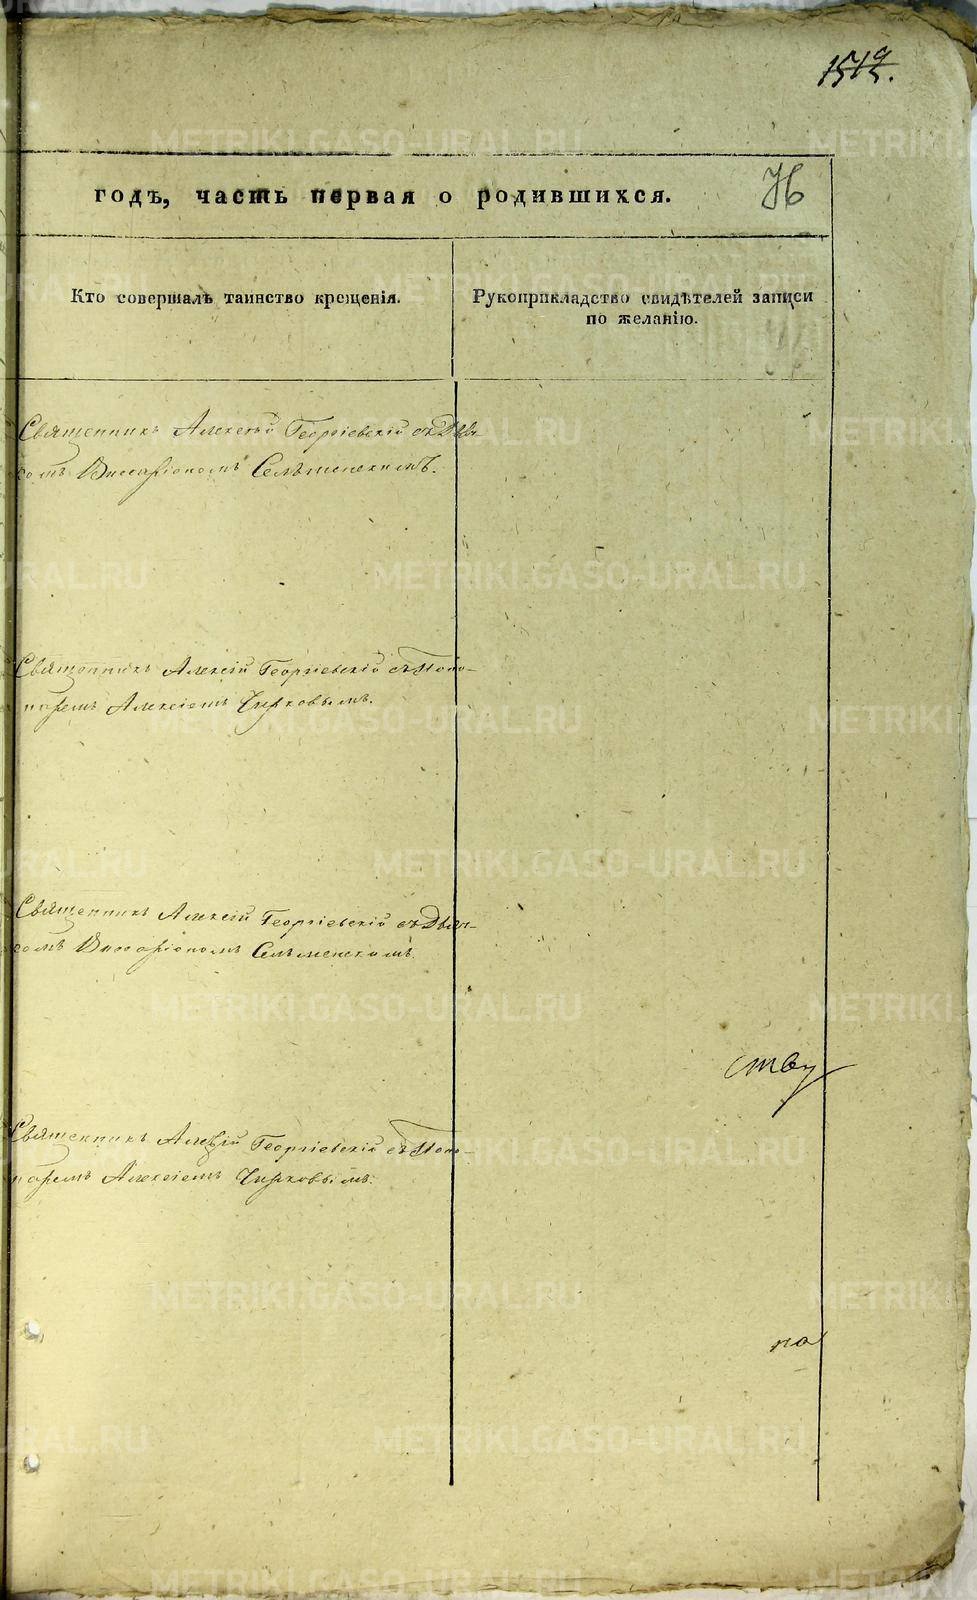 годъ, часть первая о родившихся.
76
Кто совершалъ таинство крещенія.
Рукоприкладство свидѣтелей записи
по желанію.
Священникъ Алексѣй Георгіевскій съ Дьяч-
комъ Виссаріономъ
Священникъ Алексій Георгіевскій съ Поно-
маремъ Алексіемъ Чирковымъ.
Священникъ Алексій Георгіевскій съ Дьяч-
комъ Виссаріономъ
ству
Священникъ Алексій Георгіевскій съ Поно-
маремъ Алексіемъ Чирковымъ.
по
METRIKI.GASO-URAL.RU